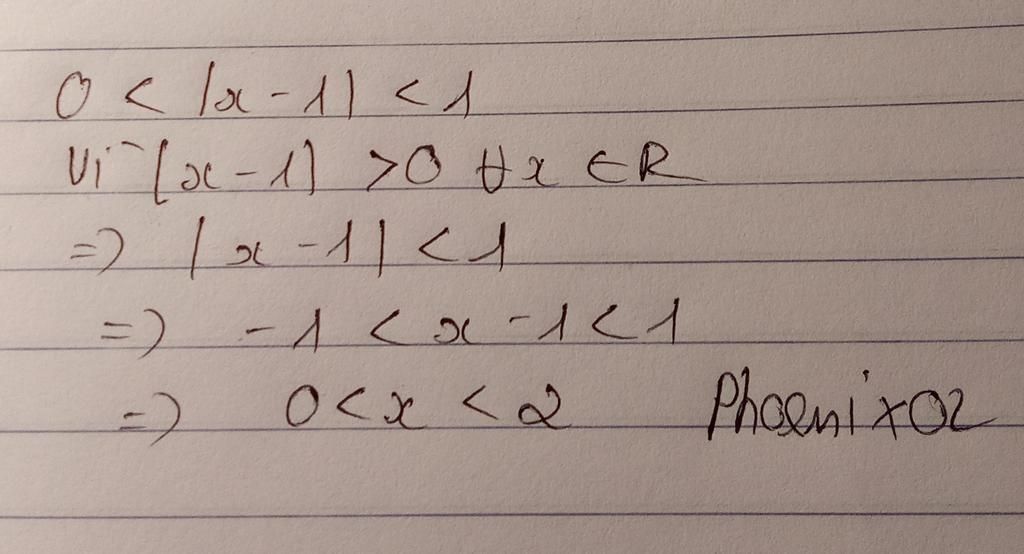 0 < |x - 1| < 1
Vì |x - 1| > 0 ∀x ∈ R
=> |x - 1| < 1
=> -1 < x - 1 < 1
=> 0 < x < 2 Phoenix02